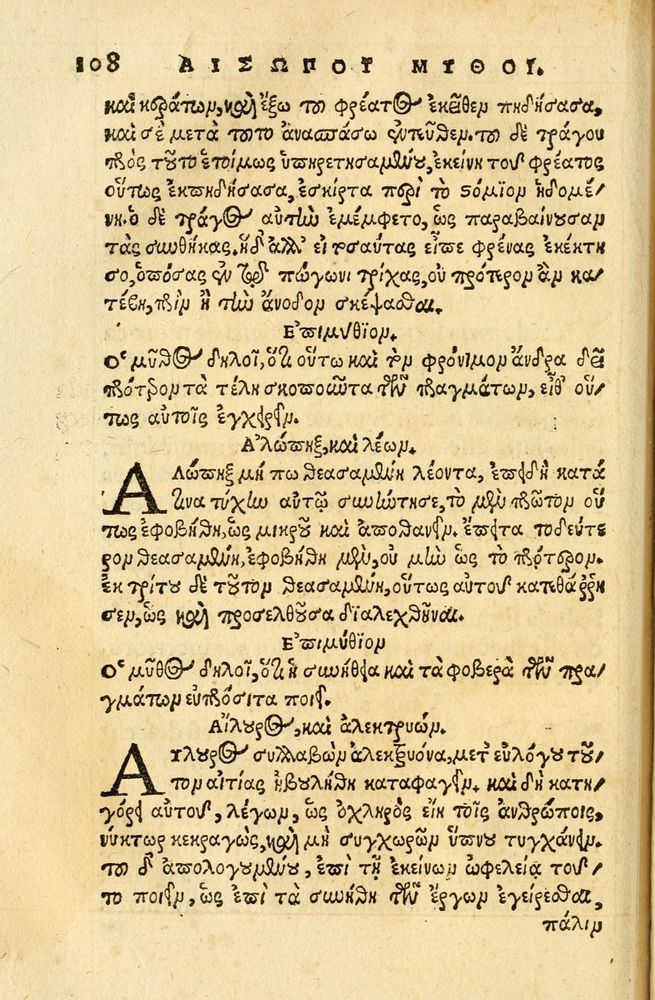 108 ΑΙΣΩΠΟΥ ΜΥΘΟΙ.
καὶ κεράτων, καὶ ἔξω τοῦ φρέατος ἐκεῖθεν πηδήσασα,
καὶ σὲ μετὰ τοῦτο ἀνασπάσω ἐντεῦθεν. τοῦ δὲ τράγου
πρὸς τοῦτο ἑτοίμως ὑπηρετησαμένου, ἐκείνη τοῦ φρέατος
οὕτως ἐκπηδήσασα, ἐσκίρτα περὶ τὸ στόμιον ἡδομέ/
νη. ὁ δὲ τράγος αὐτὴν ἐμέμφετο, ὡς παραβαίνουσαν
τὰς συνθήκας. ἡ δ' ἀλλ' εἰ τοσαύτας εἶπε φρένας ἐκέκτη
σο, ὁπόσας ἐν τῷ πώγωνι τρίχας, οὐ πρότερον ἂν κα/
τέβης, πρὶν ἢ τὴν ἄνοδον σκέψασθαι.
Ἐπιμύθιον.
Ὁ μῦθος δηλοῖ, ὅτι οὕτω καὶ τὸν φρόνιμον ἄνδρα δεῖ
πρότερον τὰ τέλη σκοποῦντα τῶν πραγμάτων, εἶθ' οὕ/
τως αὐτοῖς ἐγχειρεῖν.
Ἀλώπηξ, καὶ λέων.
ΑΛώπηξ μή πω θεασαμένη λέοντα, ἐπειδὴ κατά
τινα τύχην αὐτῷ συνήντησε, τὸ μὲν πρῶτον οὕ
τως ἐφοβήθη, ὡς μικροῦ καὶ ἀποθανεῖν. ἔπειτα τὸ δεύτε
ρον θεασαμένη, ἐφοβήθη μὲν, οὐ μὴν ὡς τὸ πρότερον.
ἐκ τρίτου δὲ τοῦτον θεασαμένη, οὕτως αὐτοῦ κατεθάρρη
σεν, ὡς καὶ προσελθοῦσα διαλεχθῆναι.
Ἐπιμύθιον
Ὁ μῦθος δηλοῖ, ὅτι ἡ συνήθεια καὶ τὰ φοβερὰ τῶν πρα/
γμάτων εὐπρόσιτα ποιεῖ.
Αἴλουρος, καὶ ἀλεκτρυών.
ΑΙλουρος συλλαβὼν ἀλεκτρυόνα, μετ' εὐλόγου τοῦ/
τον αἰτίας ἠβουλήθη καταφαγεῖν. καὶ δὴ κατη/
γόρει αὐτοῦ, λέγων, ὡς ὀχληρὸς εἴη τοῖς ἀνθρώποις,
νύκτωρ κεκραγὼς, καὶ μὴ συγχωρῶν ὕπνου τυγχάνειν.
τοῦ δ' ἀπολογουμένου, ἐπὶ τῇ ἐκείνων ὠφελείᾳ τοῦ/
το ποιεῖν, ὡς ἐπὶ τὰ συνήθη τῶν ἔργων ἐγείρεσθαι,
πάλιν